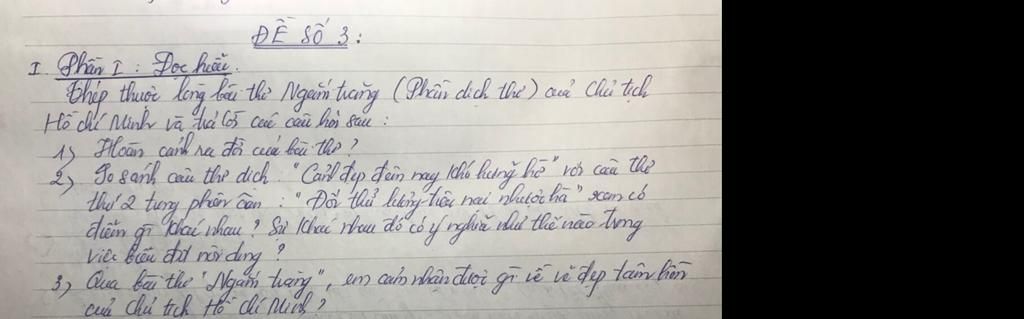 ĐỀ SỐ 3:
I. Phần I: Đọc hiểu.
Chép thuộc lòng bài thơ Ngắm trăng (Phần dịch thơ) của Chủ tịch
Hồ Chí Minh và trả lời các câu hỏi sau:
1) Hoàn cảnh ra đời của bài thơ?
2) So sánh câu thơ dịch: "Cảnh đẹp đêm nay khó hững hờ" với câu thơ
thứ 2 trong phần : "Đối thử lương tiêu nại nhược hà" xem có
điểm gì khác nhau? Sự khác nhau đó có ý nghĩa như thế nào trong
việc biểu đạt nội dung?
3) Qua bài thơ "Ngắm trăng", em cảm nhận được gì về vẻ đẹp tâm hồn
của Chủ tịch Hồ Chí Minh?